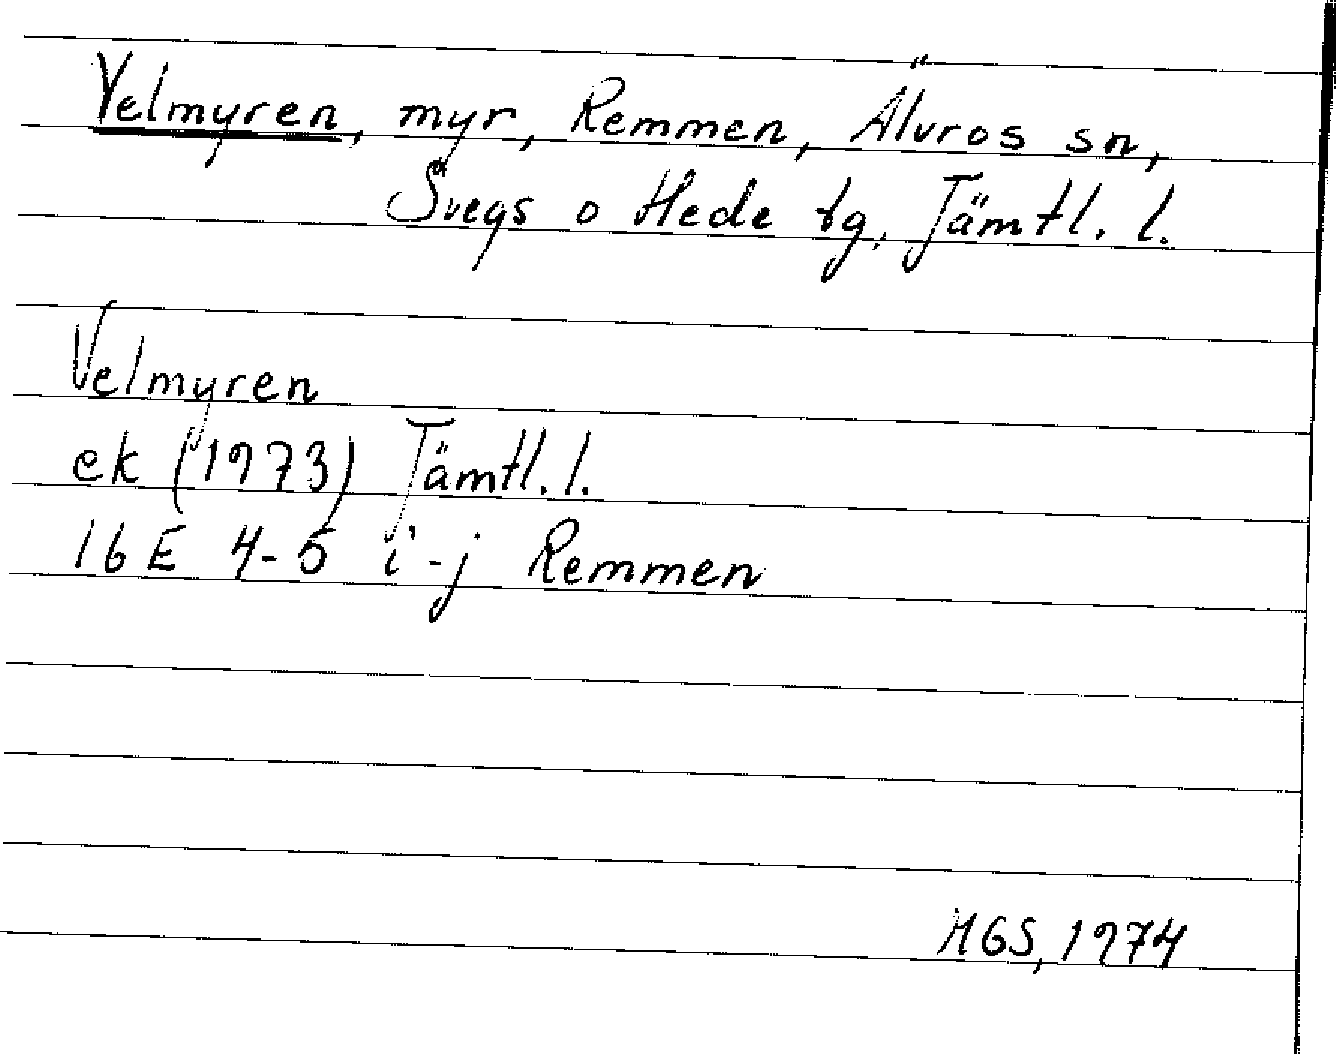 Velmyren, myr, Remmen, Älvros sn,
Svegs o Hede tg, Jämtl. l.
Velmyren
ek (1973) Jämtl. l.
16E 4-5 i-j Remmen
HGS, 1974